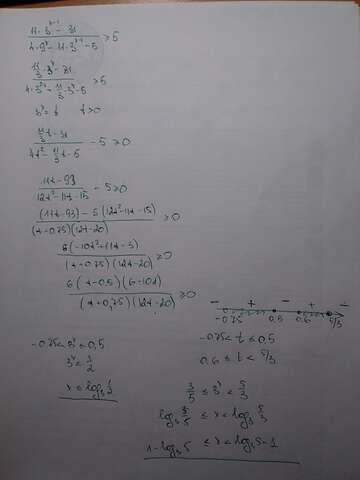 (11·3^(x-1) - 31)/(4·9^x - 11·3^(x-1) - 5) ≥ 5
(11/3·3^x - 31)/(4·3^(2x) - 11/3·3^x - 5) ≥ 5
3^x = t   t > 0
(11/3 t - 31)/(4t² - 11/3 t - 5) - 5 ≥ 0
(11t - 93)/(12t² - 11t - 15) - 5 ≥ 0
((11t - 93) - 5(12t² - 11t - 15))/((t + 0.75)(12t - 20)) ≥ 0
6(-10t² + 11t - 3)/((t + 0.75)(12t - 20)) ≥ 0
6(t - 0.5)(6 - 10t)/((t + 0,75)(12t - 20)) ≥ 0
- + - + -
-0.75 0,5 0,6 5/3
-0.75 < t ≤ 0,5
0,6 ≤ t < 5/3
-0.75 < 3^x ≤ 0,5
3^x ≤ 1/2
x ≤ log₃ 1/2
3/5 ≤ 3^x < 5/3
log₃ 3/5 ≤ x < log₃ 5/3
1 - log₃5 ≤ x < log₃5 - 1